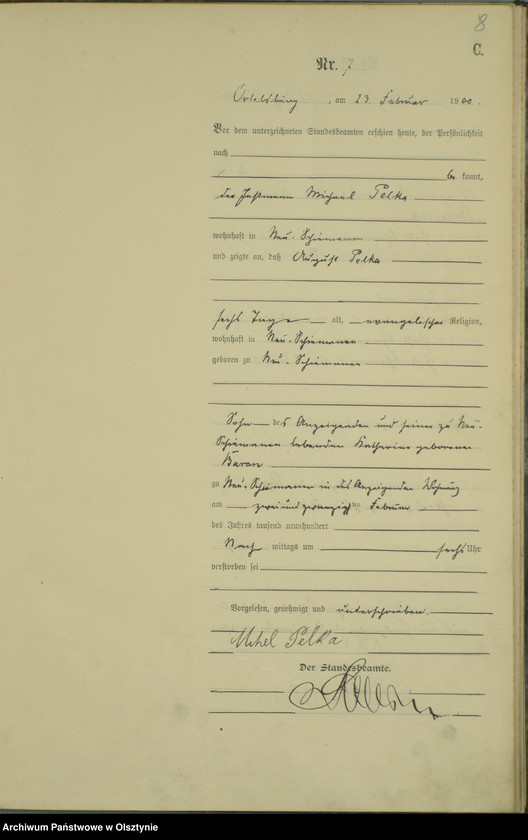 8
C.
Nr. 7
Ortelsburg, am 23. Februar 1900.
Vor dem unterzeichneten Standesbeamten erschien heute, der Persönlichkeit
nach
be kannt,
der Michael Pelka
wohnhaft in Neu-Schiemanen
und zeigte an, daß August Pelka
sechs Tage alt, evangelischer Religion,
wohnhaft in Neu-Schiemanen
geboren zu Neu-Schiemanen
Sohn des Anzeigenden und seiner zu Neu-
Schiemanen lebenden Katharine geborenen
Baran
zu Neu-Schiemanen in des Anzeigenden Wohnung
am zweiundzwanzigsten Februar
des Jahres tausend neunhundert
Nach mittags um sechs Uhr
verstorben sei
Vorgelesen, genehmigt und unterschrieben
Michel Pelka
Der Standesbeamte.
Archiwum Państwowe w Olsztynie